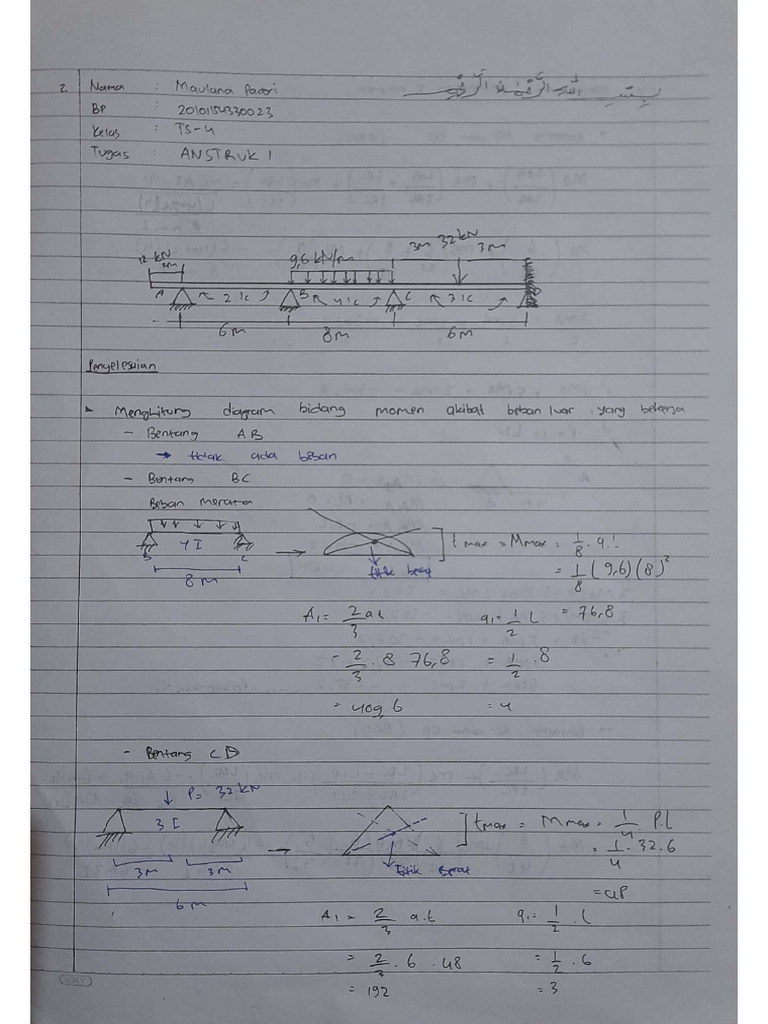 2. Nama : Maulana Padri
BP : 2010154330023
Kelas : TS-4
Tugas : ANSTRUK 1
بِسْمِ اللّٰهِ الرَّحْمٰنِ الرَّحِيْمِ
12 kN 2m 9,6 kN/m 3m 32 kN 3m
A 2 IC B 4 IC C 3 IC
6m 8m 6m
Penyelesaian
Menghitung diagram bidang momen akibat beban luar yang bekerja
- Bentang AB
→ tidak ada beban
- Bentang BC
Beban Merata
B 4 I C → titik berat ] t max = M max = 1/8 . q.l
8 m = 1/8 (9,6) (8)²
= 76,8
A1 = 2/3 a.t q1 = 1/2 L
= 2/3 . 8 76,8 = 1/2 . 8
= 409,6 = 4
- Bentang CD
P = 32 kN
3 I → titik berat ] t max = M max = 1/4 P.L
3m 3m = 1/4 . 32.6
6 m
A1 = 2/3 a.t q1 = 1/2 . L
= 2/3 . 6 . 48 = 1/2 . 6
= 192 = 3